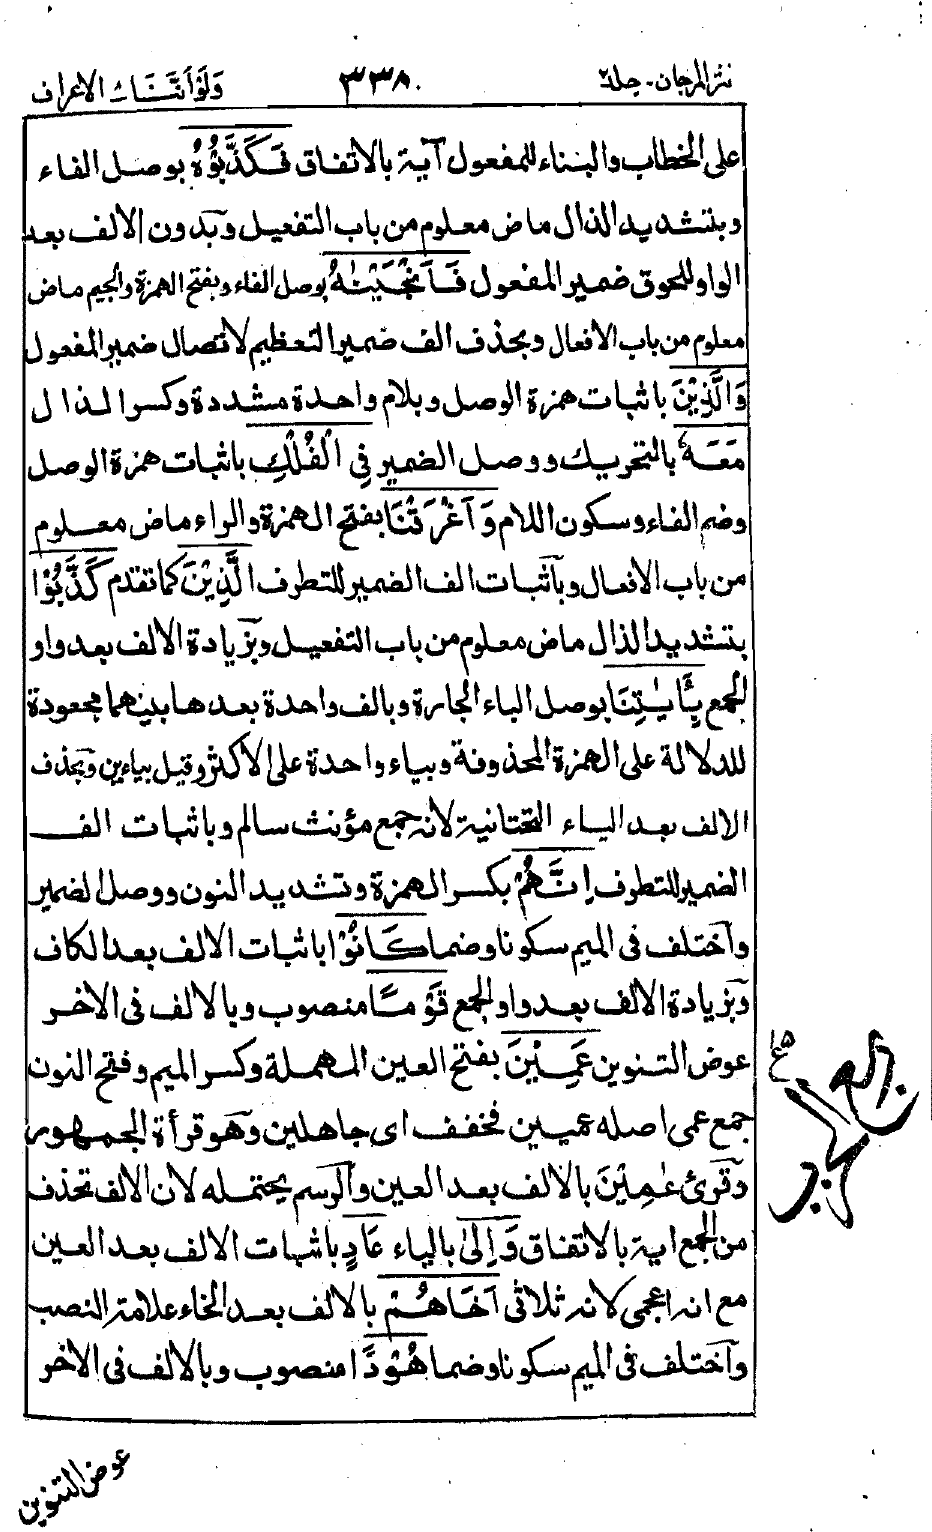 نثر المرجان - جلد٢ ٣٣٨ ولو أننا الاعراف
على الخطاب والبناء للمفعول آية بالاتفاق فَكَذَّبُوْهُ بوصل الفاء
وبتشديد الذال ماض معلوم من باب التفعيل وبدون الالف بعد
الواو للحوق ضمير المفعول فَاَنْجَيْنٰهُ بوصل الفاء وبفتح الهمزة والجيم ماض
معلوم من باب الافعال وبحذف الف ضمير التعظيم لاتصال ضمير المفعول
وَالَّذِيْنَ باثبات همزة الوصل وبلام واحدة مشددة وكسر الذال
مَعَهٗ بالتحريك ووصل الضمير فِي الْفُلْكِ باثبات همزة الوصل
وضم الفاء وسكون اللام وَاَغْرَقْنَا بفتح الهمزة والراء ماض معلوم
من باب الافعال وباثبات الف الضمير للتطرف الَّذِيْنَ كما تقدم كَذَّبُوْا
بتشديد الذال ماض معلوم من باب التفعيل وبزيادة الالف بعد واو
الجمع بِاٰيٰتِنَا بوصل الباء الجارة وبالف واحدة بعدها بينهما مجعودة
للدلالة على الهمزة المحذوفة وبياء واحدة على الاكثر وقيل بياءين وبحذف
الالف بعد الياء التحتانية لانه جمع مؤنث سالم وباثبات الف
الضمير للتطرف اِنَّهُمْ بكسر الهمزة وتشديد النون ووصل الضمير
واختلف فى الميم سكونا وضما كَانُوْا باثبات الالف بعد الكاف
وبزيادة الالف بعد واو الجمع قَوْمًا منصوب وبالالف فى الاخر
عوض التنوين عَمِيْنَ بفتح العين المهملة وكسر الميم وفتح النون
جمع عمى اصله عميين فخفف اى جاهلين وهو قرأة الجمهور
وقرئ عٰمِيْنَ بالالف بعد العين والرسم يحتمله لان الالف تحذف
من الجمع اية بالاتفاق وَاِلٰى بالياء عَادٍ باثبات الالف بعد العين
مع انه اعجمى لانه ثلاثى اَخَاهُمْ بالالف بعد الخاء علامة النصب
واختلف فى الميم سكونا وضما هُوْدًا منصوب وبالالف فى الاخر
عوض التنوين